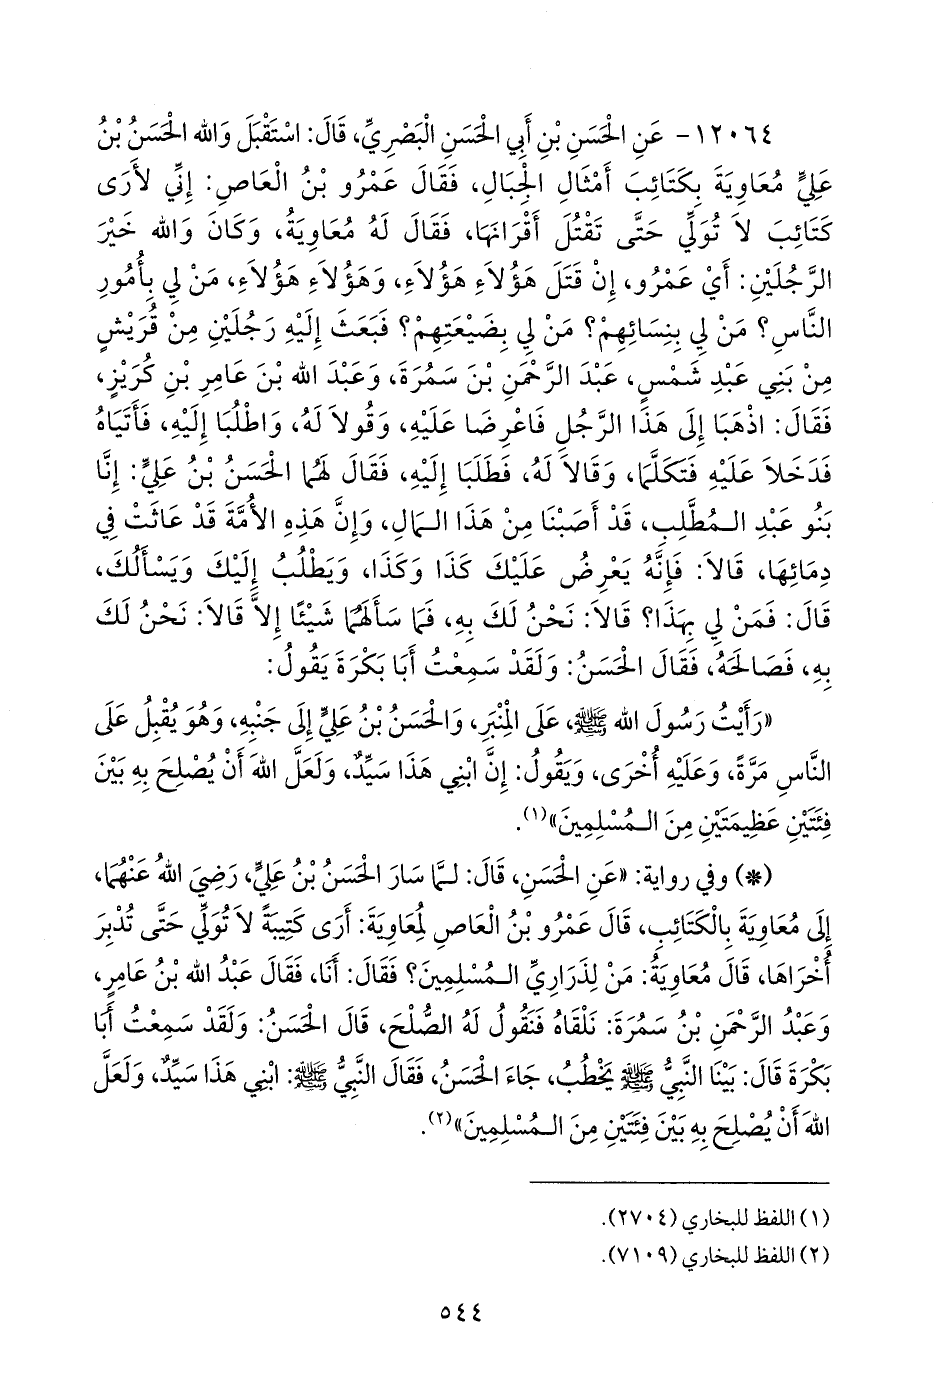 ١٢٠٦٤- عَنِ الْحَسَنِ بْنِ أَبِي الْحَسَنِ الْبَصْرِيِّ، قَالَ: اسْتَقْبَلَ وَالله الْحَسَنُ بْنُ
عَلِيٍّ مُعَاوِيَةَ بِكَتَائِبَ أَمْثَالِ الْجِبَالِ، فَقَالَ عَمْرُو بْنُ الْعَاصِ: إِنِّي لأَرَى
كَتَائِبَ لاَ تُوَلِّي حَتَّى تَقْتُلَ أَقْرَانَهَا، فَقَالَ لَهُ مُعَاوِيَةُ، وَكَانَ وَالله خَيْرَ
الرَّجُلَيْنِ: أَيْ عَمْرُو، إِنْ قَتَلَ هَؤُلاَءِ هَؤُلاَءِ، وَهَؤُلاَءِ هَؤُلاَءِ، مَنْ لِي بِأُمُورِ
النَّاسِ؟ مَنْ لِي بِنِسَائِهِمْ؟ مَنْ لِي بِضَيْعَتِهِمْ؟ فَبَعَثَ إِلَيْهِ رَجُلَيْنِ مِنْ قُرَيْشٍ
مِنْ بَنِي عَبْدِ شَمْسٍ، عَبْدَ الرَّحْمَنِ بْنَ سَمُرَةَ، وَعَبْدَ الله بْنَ عَامِرِ بْنِ كُرَيْزٍ،
فَقَالَ: اذْهَبَا إِلَى هَذَا الرَّجُلِ فَاعْرِضَا عَلَيْهِ، وَقُولاَ لَهُ، وَاطْلُبَا إِلَيْهِ، فَأَتَيَاهُ
فَدَخَلاَ عَلَيْهِ فَتَكَلَّمَا، وَقَالاَ لَهُ، فَطَلَبَا إِلَيْهِ، فَقَالَ لَهُمَا الْحَسَنُ بْنُ عَلِيٍّ: إِنَّا
بَنُو عَبْدِ الْمُطَّلِبِ، قَدْ أَصَبْنَا مِنْ هَذَا الْمَالِ، وَإِنَّ هَذِهِ الأُمَّةَ قَدْ عَاثَتْ فِي
دِمَائِهَا، قَالاَ: فَإِنَّهُ يَعْرِضُ عَلَيْكَ كَذَا وَكَذَا، وَيَطْلُبُ إِلَيْكَ وَيَسْأَلُكَ،
قَالَ: فَمَنْ لِي بِهَذَا؟ قَالاَ: نَحْنُ لَكَ بِهِ، فَمَا سَأَلَهُمَا شَيْئًا إِلاَّ قَالاَ: نَحْنُ لَكَ
بِهِ، فَصَالَحَهُ، فَقَالَ الْحَسَنُ: وَلَقَدْ سَمِعْتُ أَبَا بَكْرَةَ يَقُولُ:
«رَأَيْتُ رَسُولَ الله ﷺ، عَلَى الْمِنْبَرِ، وَالْحَسَنُ بْنُ عَلِيٍّ إِلَى جَنْبِهِ، وَهُوَ يُقْبِلُ عَلَى
النَّاسِ مَرَّةً، وَعَلَيْهِ أُخْرَى، وَيَقُولُ: إِنَّ ابْنِي هَذَا سَيِّدٌ، وَلَعَلَّ اللهَ أَنْ يُصْلِحَ بِهِ بَيْنَ
فِئَتَيْنِ عَظِيمَتَيْنِ مِنَ الْمُسْلِمِينَ»(١).
(*) وفي رواية: «عَنِ الْحَسَنِ، قَالَ: لَمَّا سَارَ الْحَسَنُ بْنُ عَلِيٍّ، رَضِيَ اللهُ عَنْهُمَا،
إِلَى مُعَاوِيَةَ بِالْكَتَائِبِ، قَالَ عَمْرُو بْنُ الْعَاصِ لِمُعَاوِيَةَ: أَرَى كَتِيبَةً لاَ تُوَلِّي حَتَّى تُدْبِرَ
أُخْرَاهَا، قَالَ مُعَاوِيَةُ: مَنْ لِذَرَارِيِّ الْمُسْلِمِينَ؟ فَقَالَ: أَنَا، فَقَالَ عَبْدُ الله بْنُ عَامِرٍ،
وَعَبْدُ الرَّحْمَنِ بْنُ سَمُرَةَ: نَلْقَاهُ فَنَقُولُ لَهُ الصُّلْحَ، قَالَ الْحَسَنُ: وَلَقَدْ سَمِعْتُ أَبَا
بَكْرَةَ قَالَ: بَيْنَا النَّبِيُّ ﷺ يَخْطُبُ، جَاءَ الْحَسَنُ، فَقَالَ النَّبِيُّ ﷺ: ابْنِي هَذَا سَيِّدٌ، وَلَعَلَّ
اللهَ أَنْ يُصْلِحَ بِهِ بَيْنَ فِئَتَيْنِ مِنَ الْمُسْلِمِينَ»(٢).
(١) اللفظ للبخاري (٢٧٠٤).
(٢) اللفظ للبخاري (٧١٠٩).
٥٤٤